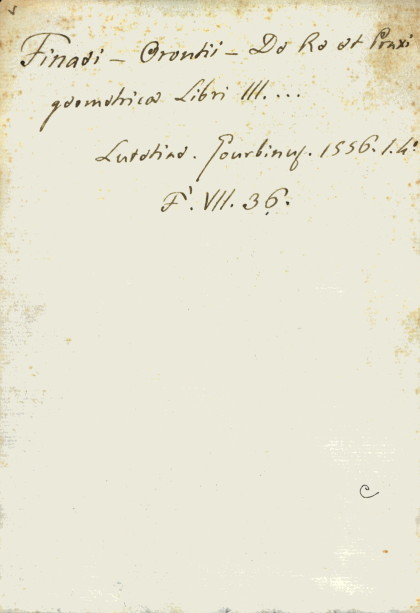 Finaei – Orontii – De Re et Praxi
geometrica Libri III. ...
Lutetiae. Gourbinus. 1556. 1.4°
F. VII. 36.